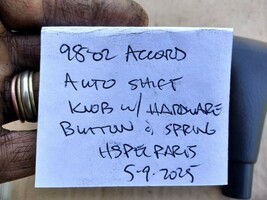 98-02 ACCORD
AUTO SHIFT
KNOB W/ HARDWARE
BUTTON & SPRING
HSPECPARTS
5-9-2025